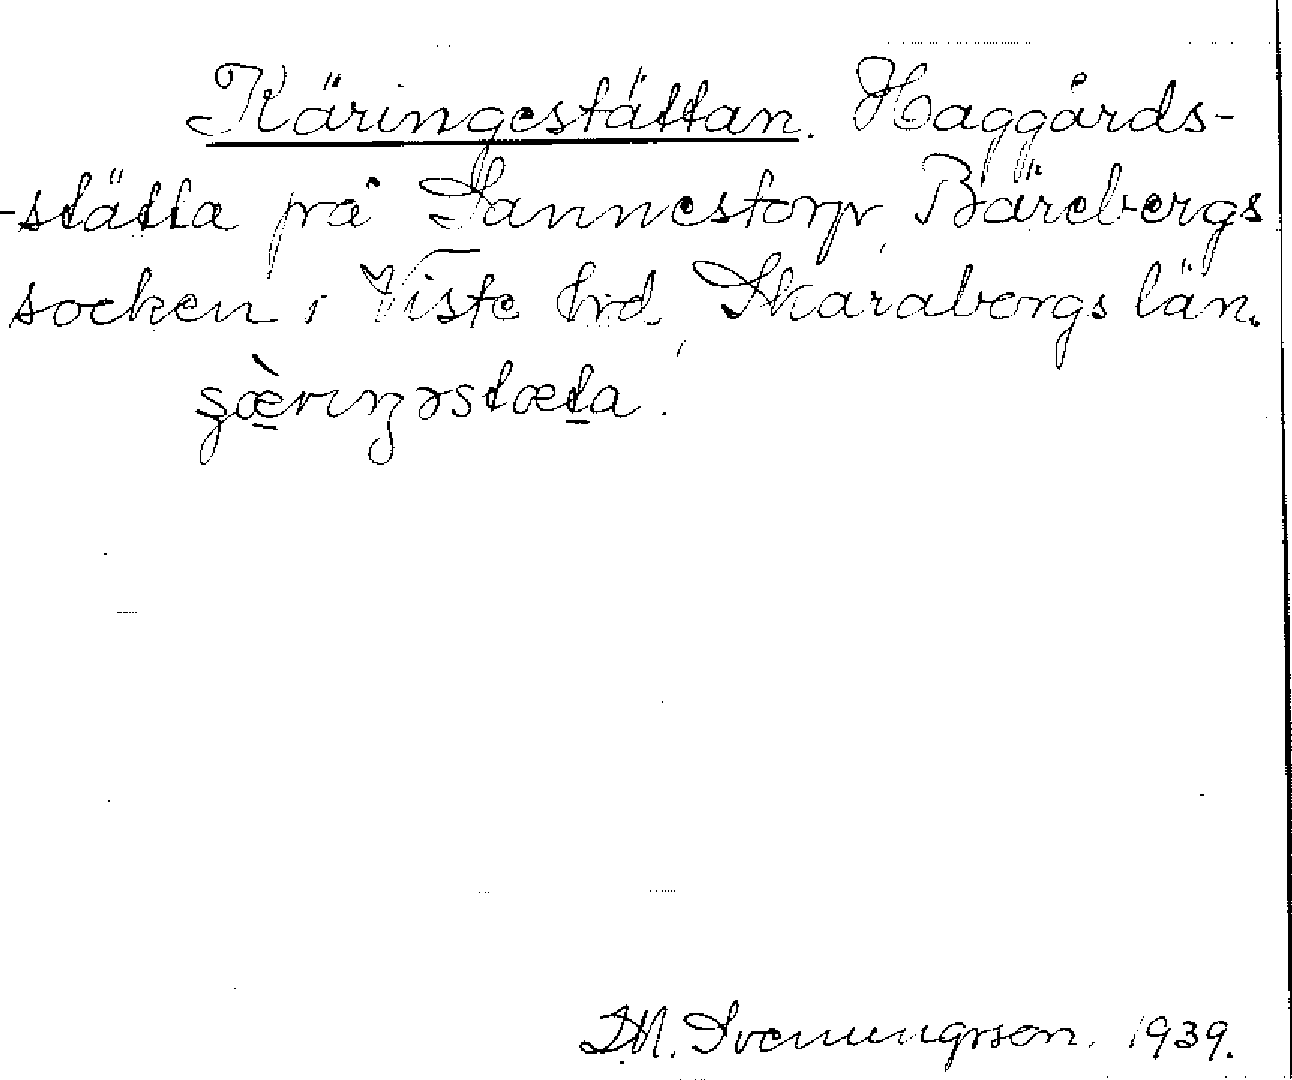 Käringestättan. Haggårds-
-stätta på Sannestorp, Bärebergs
socken i Viste hrd, Skarabergs län.
S.M. Svenungsson. 1939.